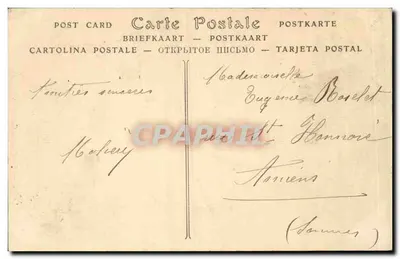 POST CARD Carte Postale POSTKARTE
BRIEFKAART — POSTKAART
CARTOLINA POSTALE — ОТКРЫТОЕ ПИСЬМО — TARJETA POSTAL
Amitiés sincères
Mademoiselle
Eugénie
rue St Honoré
Amiens
(Somme)
CPAPHIL